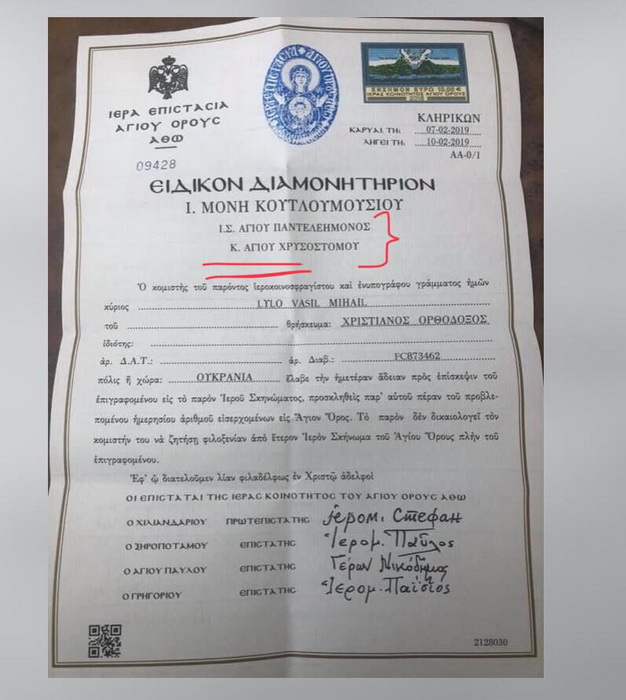 ΙΕΡΑ ΕΠΙΣΤΑΣΙΑ
ΑΓΙΟΥ ΟΡΟΥΣ
ΑΘΩ
ΕΝΣΗΜΟΝ ΕΥΡΩ 10,00 €
ΙΕΡΑΣ ΚΟΙΝΟΤΗΤΟΣ ΑΓΙΟΥ ΟΡΟΥΣ
ΚΛΗΡΙΚΩΝ
ΚΑΡΥΑΙ ΤΗ: 07-02-2019
ΛΗΓΕΙ ΤΗ: 10-02-2019
ΑΑ-0/1
09428
ΕΙΔΙΚΟΝ ΔΙΑΜΟΝΗΤΗΡΙΟΝ
Ι. ΜΟΝΗ ΚΟΥΤΛΟΥΜΟΥΣΙΟΥ
Ι.Σ. ΑΓΙΟΥ ΠΑΝΤΕΛΕΗΜΟΝΟΣ
Κ. ΑΓΙΟΥ ΧΡΥΣΟΣΤΟΜΟΥ
Ὁ κομιστὴς τοῦ παρόντος ἱεροκοινοσφραγίστου καὶ ἐνυπογράφου γράμματος ἡμῶν
κύριος LYLO VASIL MIHAIL
τοῦ θρήσκευμα: ΧΡΙΣΤΙΑΝΟΣ ΟΡΘΟΔΟΞΟΣ
ἰδιότης:
ἀρ. Δ.Α.Τ.: ἀρ. Διαβ.: FC873462
πόλις ἢ χώρα: ΟΥΚΡΑΝΙΑ ἔλαβε τὴν ἡμετέραν ἄδειαν πρὸς ἐπίσκεψιν τοῦ
ἐπιγραφομένου εἰς τὸ παρὸν Ἱεροῦ Σκηνώματος, προσκληθεὶς παρ' αὐτοῦ πέραν τοῦ προβλε-
πομένου ἡμερησίου ἀριθμοῦ εἰσερχομένων εἰς Ἅγιον Ὄρος. Τὸ παρὸν δὲν δικαιολογεῖ τὸν
κομιστήν του νὰ ζητήσῃ φιλοξενίαν ἀπὸ ἕτερον Ἱερὸν Σκήνωμα τοῦ Ἁγίου Ὄρους πλὴν τοῦ
ἐπιγραφομένου.
Ἐφ' ᾧ διατελοῦμεν λίαν φιλαδέλφως ἐν Χριστῷ ἀδελφοὶ
ΟΙ ΕΠΙΣΤΑΤΑΙ ΤΗΣ ΙΕΡΑΣ ΚΟΙΝΟΤΗΤΟΣ ΤΟΥ ΑΓΙΟΥ ΟΡΟΥΣ ΑΘΩ
Ο ΧΙΛΙΑΝΔΑΡΙΟΥ ΠΡΩΤΕΠΙΣΤΑΤΗΣ Ἱερομ. Стефан
Ο ΞΗΡΟΠΟΤΑΜΟΥ ΕΠΙΣΤΑΤΗΣ Ἱερομ. Παῦλος
Ο ΑΓΙΟΥ ΠΑΥΛΟΥ ΕΠΙΣΤΑΤΗΣ Γέρων Νικόδημος
Ο ΓΡΗΓΟΡΙΟΥ ΕΠΙΣΤΑΤΗΣ Ἱερομ. Παΐσιος
2128030